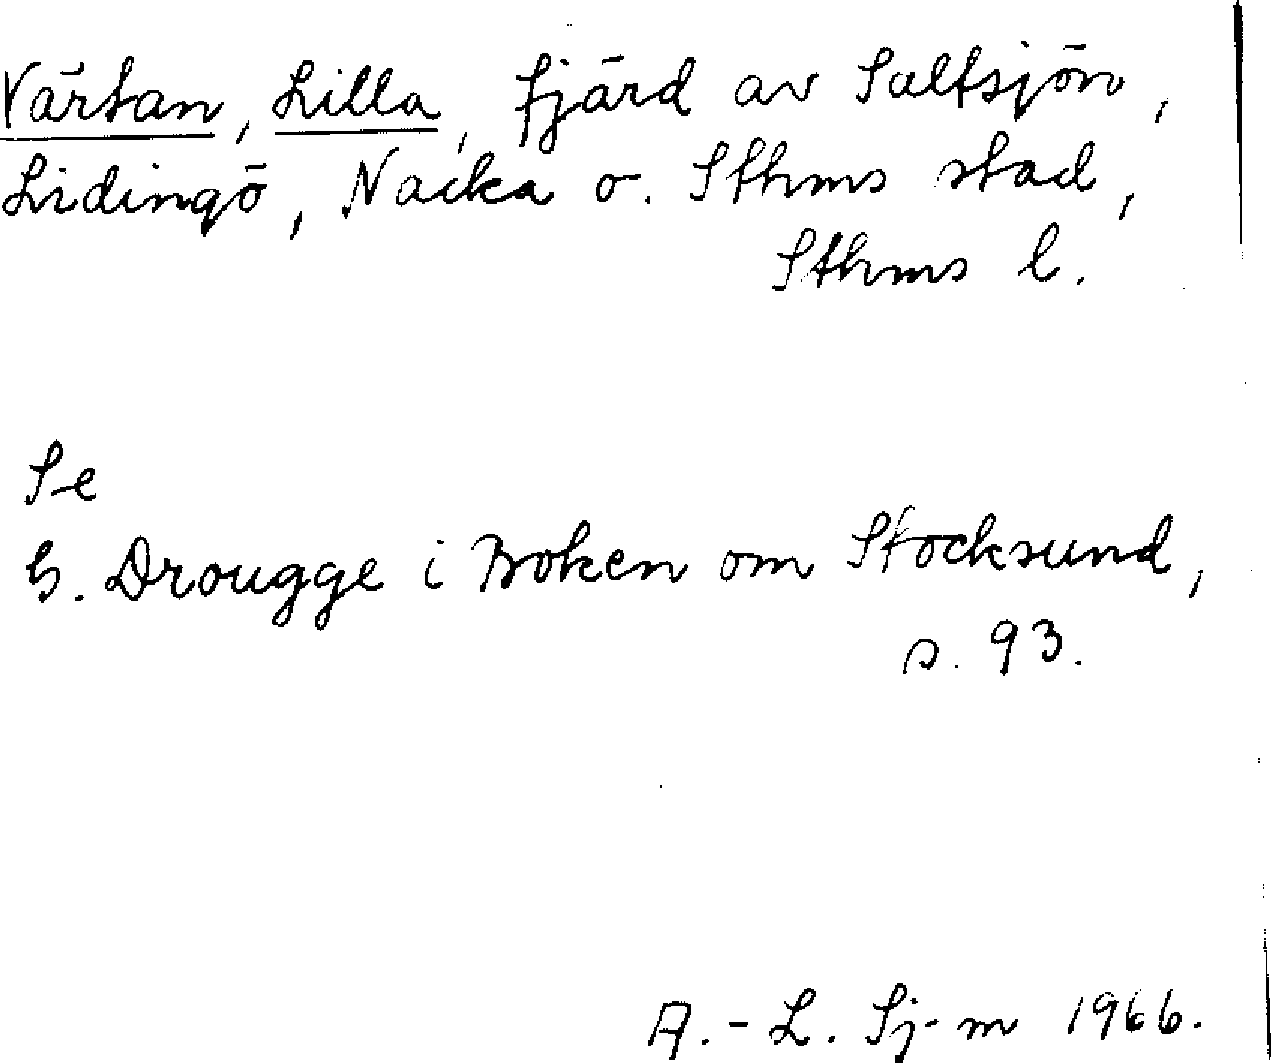 Värtan, Lilla, fjärd av Saltsjön,
Lidingö, Nacka o. Sthms stad,
Sthms l.
Se
G. Drougge i Boken om Stocksund,
s. 93.
A.-L. Sj-m 1966.